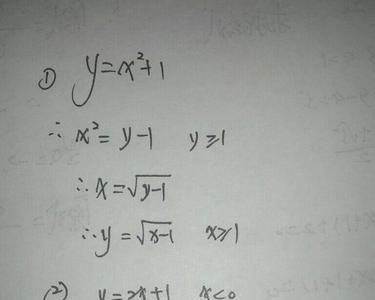 ① y=x²+1
∴ x² = y-1 y≥1
∴ x = √(y-1)
∴ y = √(x-1) x≥1
(2) y=2x+1 x<0